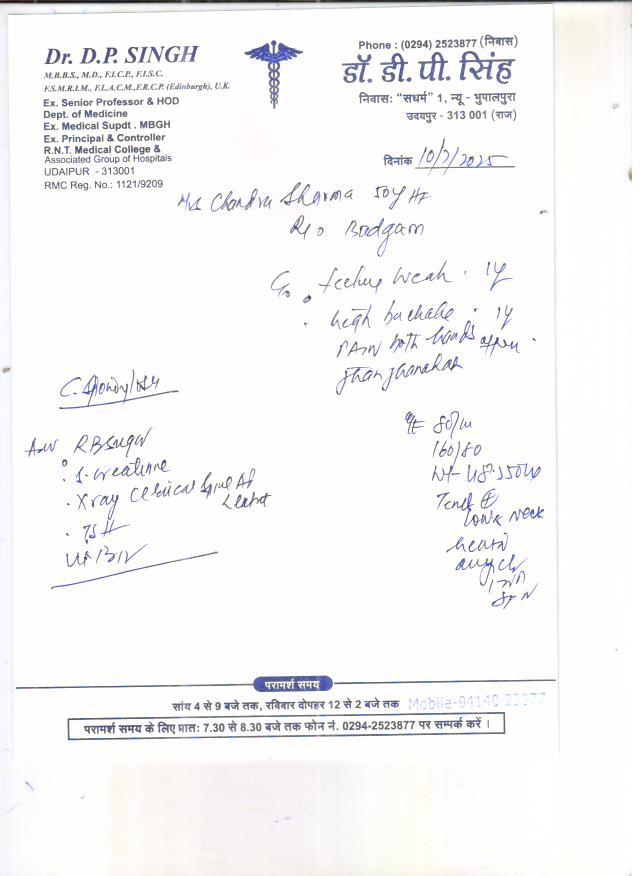 Dr. D.P. SINGH
M.B.B.S., M.D., F.I.C.P., F.I.S.C.
F.S.M.R.I.M., F.L.A.C.M.,F.R.C.P. (Edinburgh), U.K.
Ex. Senior Professor & HOD
Dept. of Medicine
Ex. Medical Supdt . MBGH
Ex. Principal & Controller
R.N.T. Medical College &
Associated Group of Hospitals
UDAIPUR - 313001
RMC Reg. No.: 1121/9209
Phone : (0294) 2523877 (निवास)
डॉ. डी. पी. सिंह
निवासः "सधर्म" 1, न्यू - भुपालपुरा
उदयपुर - 313 001 (राज)
दिनांक 10/7/2025
Mrs Chandra Sharma 50y
R/o
C/o feeling weak . 1y
. backache . 1y
PAIN both hands
Jhanjhanahat
C. Spondy
Adv RBSugar
. S. creatinine
. Xray Cervical Spine AP
Lateral
. TSH
P/E 80/m
160/80
Wt-
Tend +
Lower Neck
परामर्श समय
सांय 4 से 9 बजे तक, रविवार दोपहर 12 से 2 बजे तक Mobile-94140
परामर्श समय के लिए प्रातः 7.30 से 8.30 बजे तक फोन नं. 0294-2523877 पर सम्पर्क करें ।